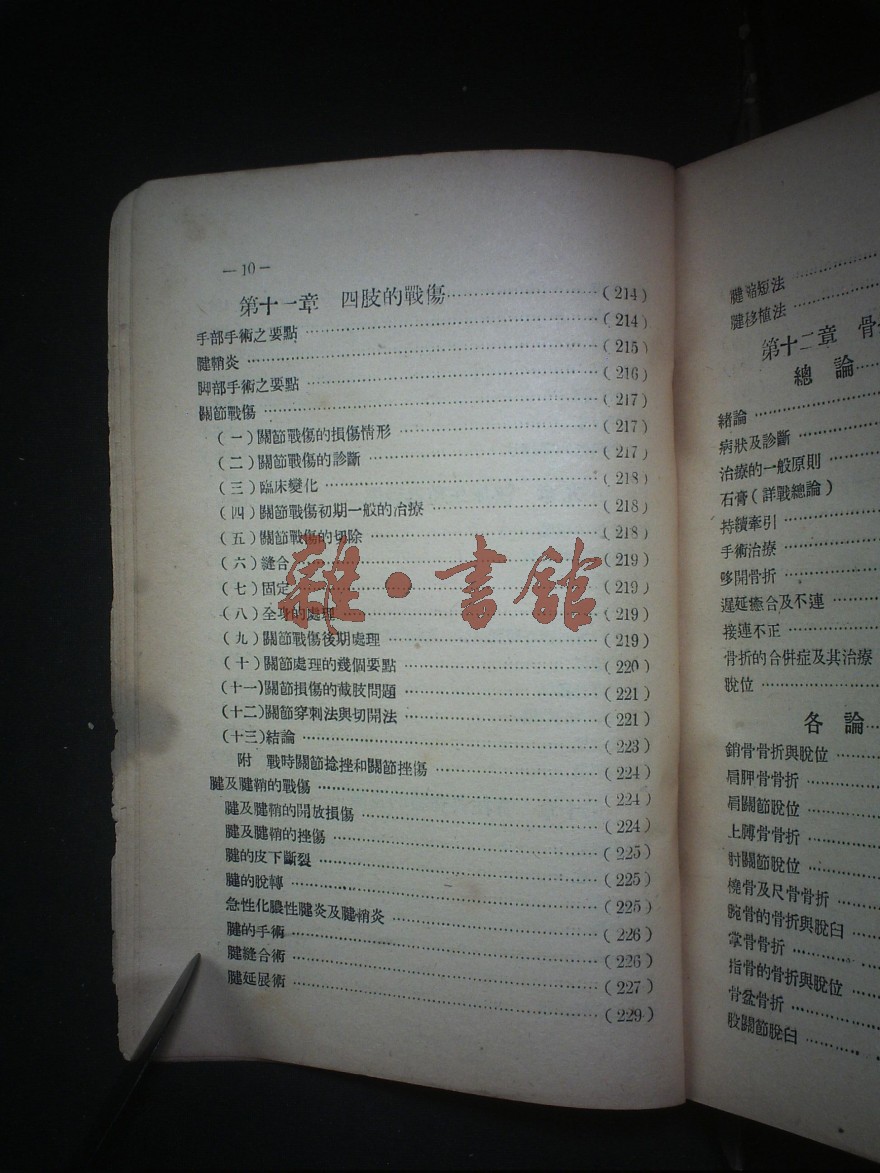 —10—
第十一章 四肢的戰傷……(214)
手部手術之要點……(214)
腱鞘炎……(215)
脚部手術之要點……(216)
關節戰傷……(217)
(一)關節戰傷的損傷情形……(217)
(二)關節戰傷的診斷……(217)
(三)臨床變化……(218)
(四)關節戰傷初期一般的治療……(218)
(五)關節戰傷的切除……(218)
(六)縫合……(219)
(七)固定……(219)
(八)全身的處理……(219)
(九)關節戰傷後期處理……(219)
(十)關節處理的幾個要點……(220)
(十一)關節損傷的截肢問題……(221)
(十二)關節穿刺法與切開法……(221)
(十三)結論……(223)
附 戰時關節捻挫和關節挫傷……(224)
腱及腱鞘的戰傷……(224)
腱及腱鞘的開放損傷……(224)
腱及腱鞘的挫傷……(225)
腱的皮下斷裂……(225)
腱的脫轉……(225)
急性化膿性腱炎及腱鞘炎……(226)
腱的手術……(226)
腱縫合術……(227)
腱延展術……(229)
雜·書館
腱縮短法……
腱移植法……
第十二章 骨
總論……
緒論……
病狀及診斷……
治療的一般原則……
石膏(詳戰總論)
持續牽引……
手術治療……
哆開骨折……
遲延癒合及不連……
接連不正……
骨折的合併症及其治療
脫位……
各論……
鎖骨骨折與脫位……
肩胛骨骨折……
肩關節脫位……
上膊骨骨折……
肘關節脫位……
橈骨及尺骨骨折……
腕骨的骨折與脫臼……
掌骨骨折……
指骨的骨折與脫位……
骨盆骨折……
股關節脫臼……